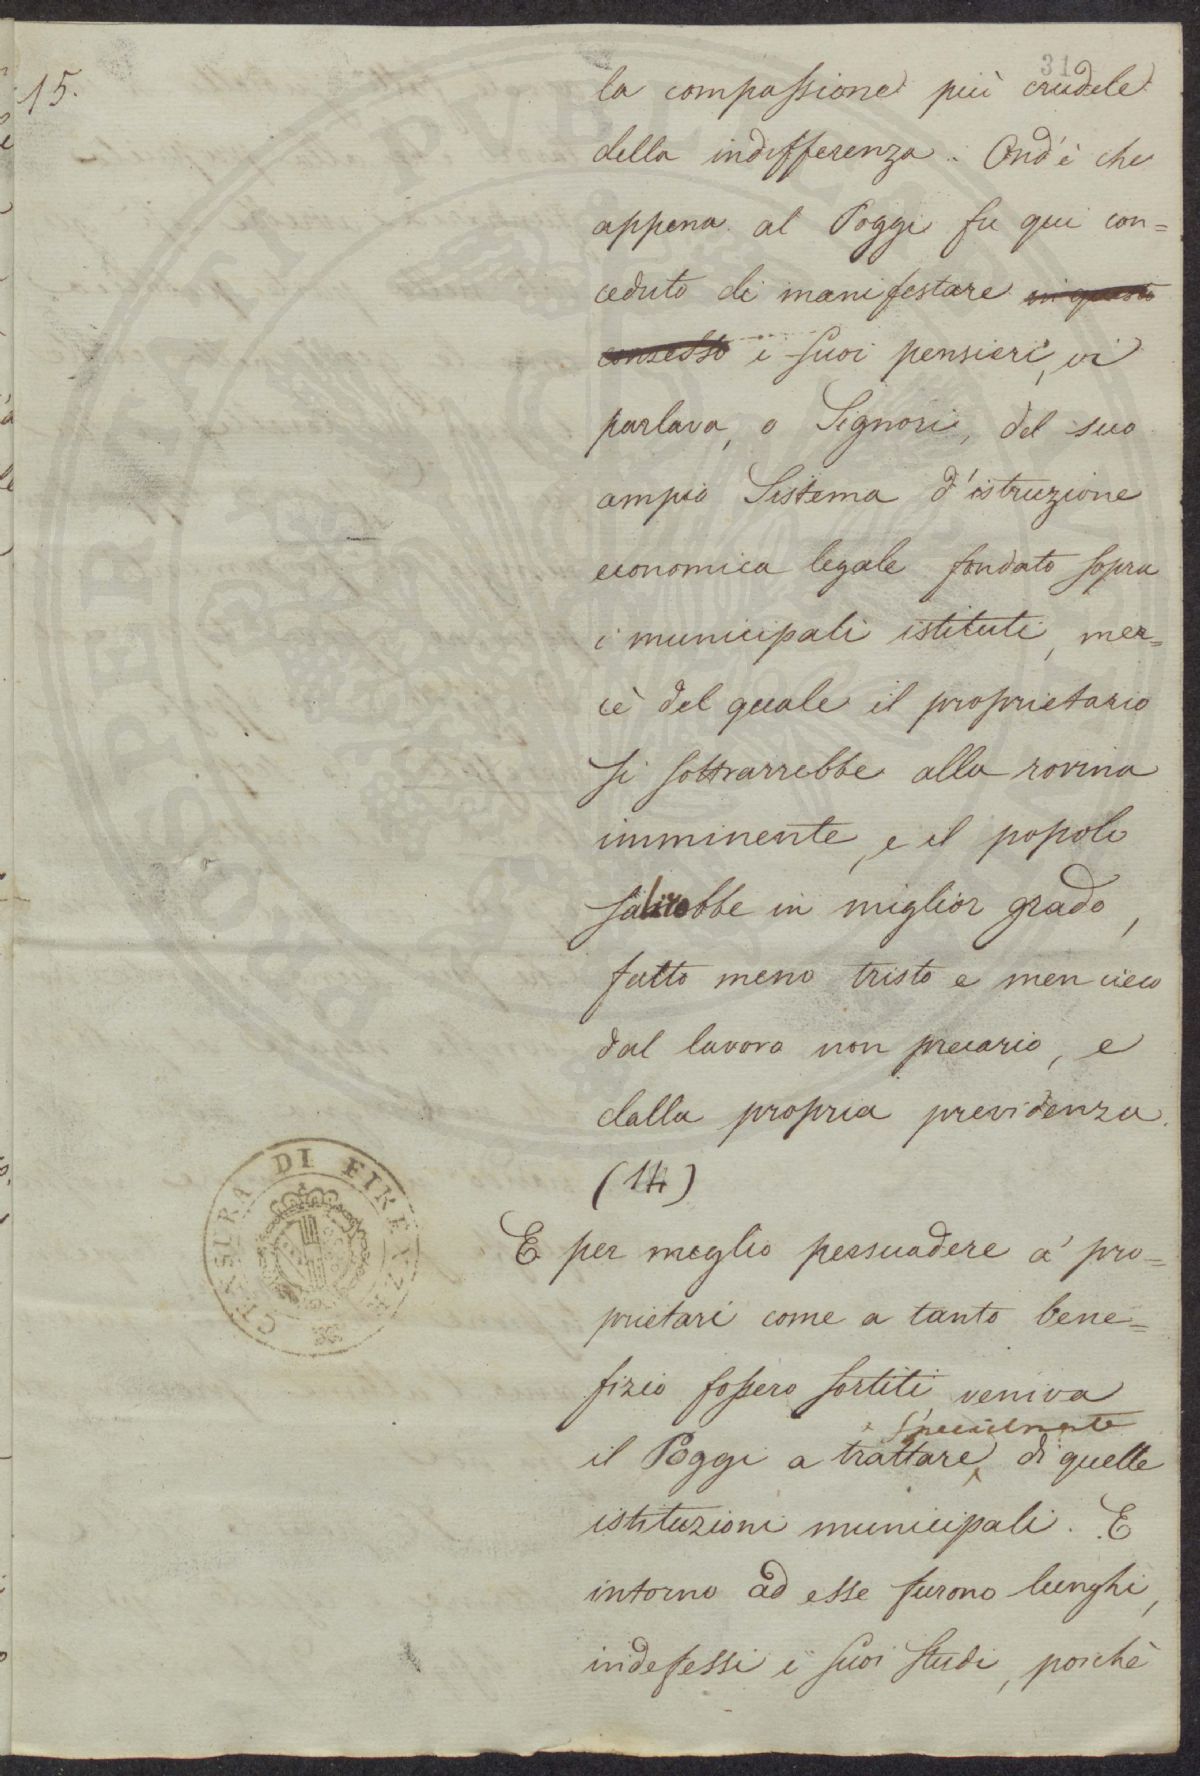 15.
31
la compassione più crudele
della indifferenza. Ond'è che
appena al Poggi fu qui con=
ceduto di manifestare in questo
consesso i suoi pensieri, vi
parlava, o Signori, del suo
ampio Sistema d'istruzione
economica legale fondato sopra
i municipali istituti, mer=
cè del quale il proprietario
si sottrarrebbe alla rovina
imminente, e il popolo
salirebbe in miglior grado,
fatto meno tristo e men cieco
dal lavoro non precario, e
dalla propria previdenza.
(14)
E per meglio persuadere a' pro=
prietari come a tanto bene=
fizio fossero sortiti, veniva
specialmente
il Poggi a trattare di quelle
istituzioni municipali. E
intorno ad esse furono lunghi,
indefessi i suoi studi, poichè
CENSURA DI FIRENZE